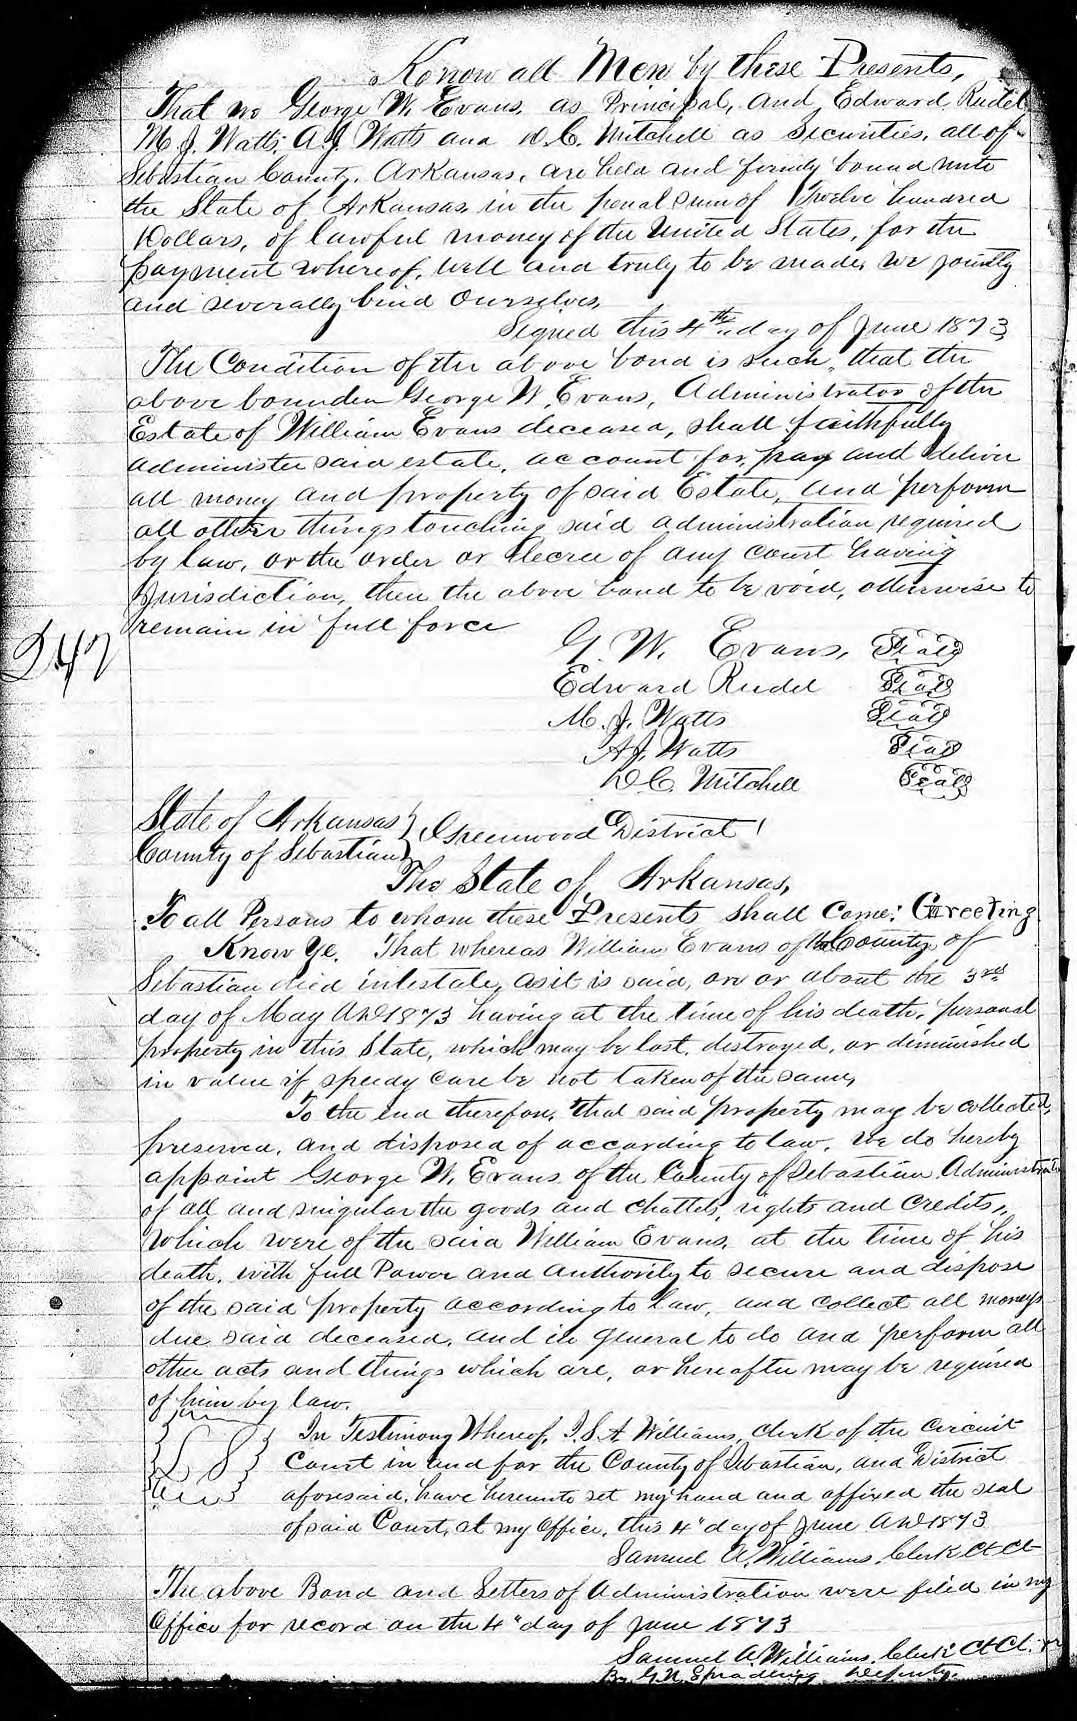 Know all Men by these Presents,
That we George W. Evans, as Principal, and Edward Rudel
M. J. Watts, A J Watts and D. C. Mitchell as Securities, all of
Sebastian County, Arkansas, are held and firmly bound unto
the State of Arkansas, in the penal sum of Twelve hundred
Dollars, of lawful money of the United States, for the
payment whereof, well and truly to be made, we jointly
and severally bind Ourselves,
Signed this 4th day of June 1873
The Condition of the above bond is such, that the
above bounden George W. Evans, Administrator of the
Estate of William Evans deceased, shall faithfully
administer said estate, account for, pay and deliver
all money and property of said Estate, and perform
all other things touching said administration required
by law, or the order or decree of any court having
Jurisdiction, then the above bond to be void, otherwise to
remain in full force
247
G. W. Evans, Seal
Edward Rudel Seal
M. J. Watts Seal
A J. Watts Seal
D C. Mitchell Seal
State of Arkansas } Greenwood District
County of Sebastian
The State of Arkansas,
To all Persons to whom these Presents shall Come: Greeting
Know Ye, That whereas William Evans of the County of
Sebastian died intestate, as it is said, on or about the 3rd
day of May AD 1873 having at the time of his death, personal
property in this State, which may be lost, destroyed, or diminished
in value if speedy care be not taken of the same,
To the end therefore, that said property may be collected,
preserved, and disposed of according to law, we do hereby
appoint George W. Evans of the County of Sebastian Administrator
of all and singular the goods and chattels, rights and credits,
which were of the said William Evans, at the time of his
death, with full Power and authority to secure and dispose
of the said property according to law, and collect all moneys
due said deceased, and in general to do and perform all
other acts and things which are, or hereafter may be required
of him by law.
In Testimony Whereof, I, S. A Williams, clerk of the Circuit
L S Court in and for the County of Sebastian, and District
aforesaid, have hereunto set my hand and affixed the seal
of said Court, at my Office, this 4" day of June AD 1873
Samuel A. Williams, Clerk Ct Ct
The above Bond and Letters of Administration were filed in my
Office for record on the 4" day of June 1873
Samuel A. Williams, Clerk Ct Ct.
By G. N. Spradling Deputy.